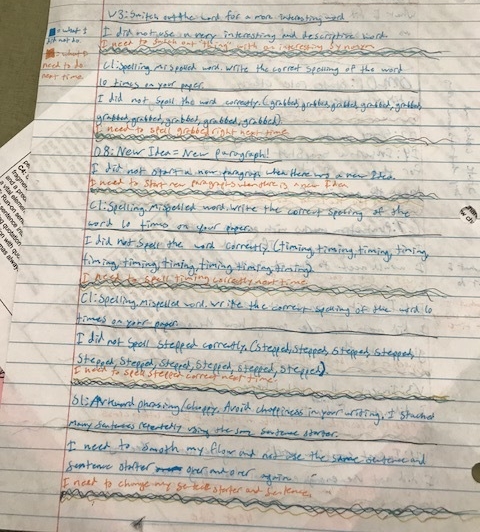 V3: Switch out the word for a more interesting word
■ = what I did not do.
I did not use a very interesting and descriptive word
I need to switch out "thing" with an interesting
need to do next time.
C1: Spelling mispelled word. Write the correct spelling of the word
10 times on your paper.
I did not spell the word correctly. (grabbed, grabbed, grabbed, grabbed, grabbed,
grabbed, grabbed, grabbed, grabbed, grabbed)
I need to spell grabbed right next time
O8: New Idea = New Paragraph!
I did not start a new paragraph when there was a new Idea.
I need to start new paragraphs when there is a new Idea
C1: Spelling Mispelled word. Write the correct spelling of the
word 10 times on your paper.
I did not spell the word correctly (timing, timing, timing, timing
timing, timing, timing, timing, timing, timing)
I need to spell timing correctly next time
C1: Spelling, mispelled word. write the correct spelling of the word 10
times on your paper.
I did not spell stepped correctly. (stepped, stepped, stepped, stepped
stepped, stepped, stepped, stepped, stepped, stepped)
I need to spell stepped correct next time
S1: Awkward phrasing/choppy. Avoid choppiness in your writing. I stacked
many sentences repeatedly using the same sentence starter.
I need to smooth my flow and not use the same sentence and
sentence starter over and over again
I need to change my starter and sentences